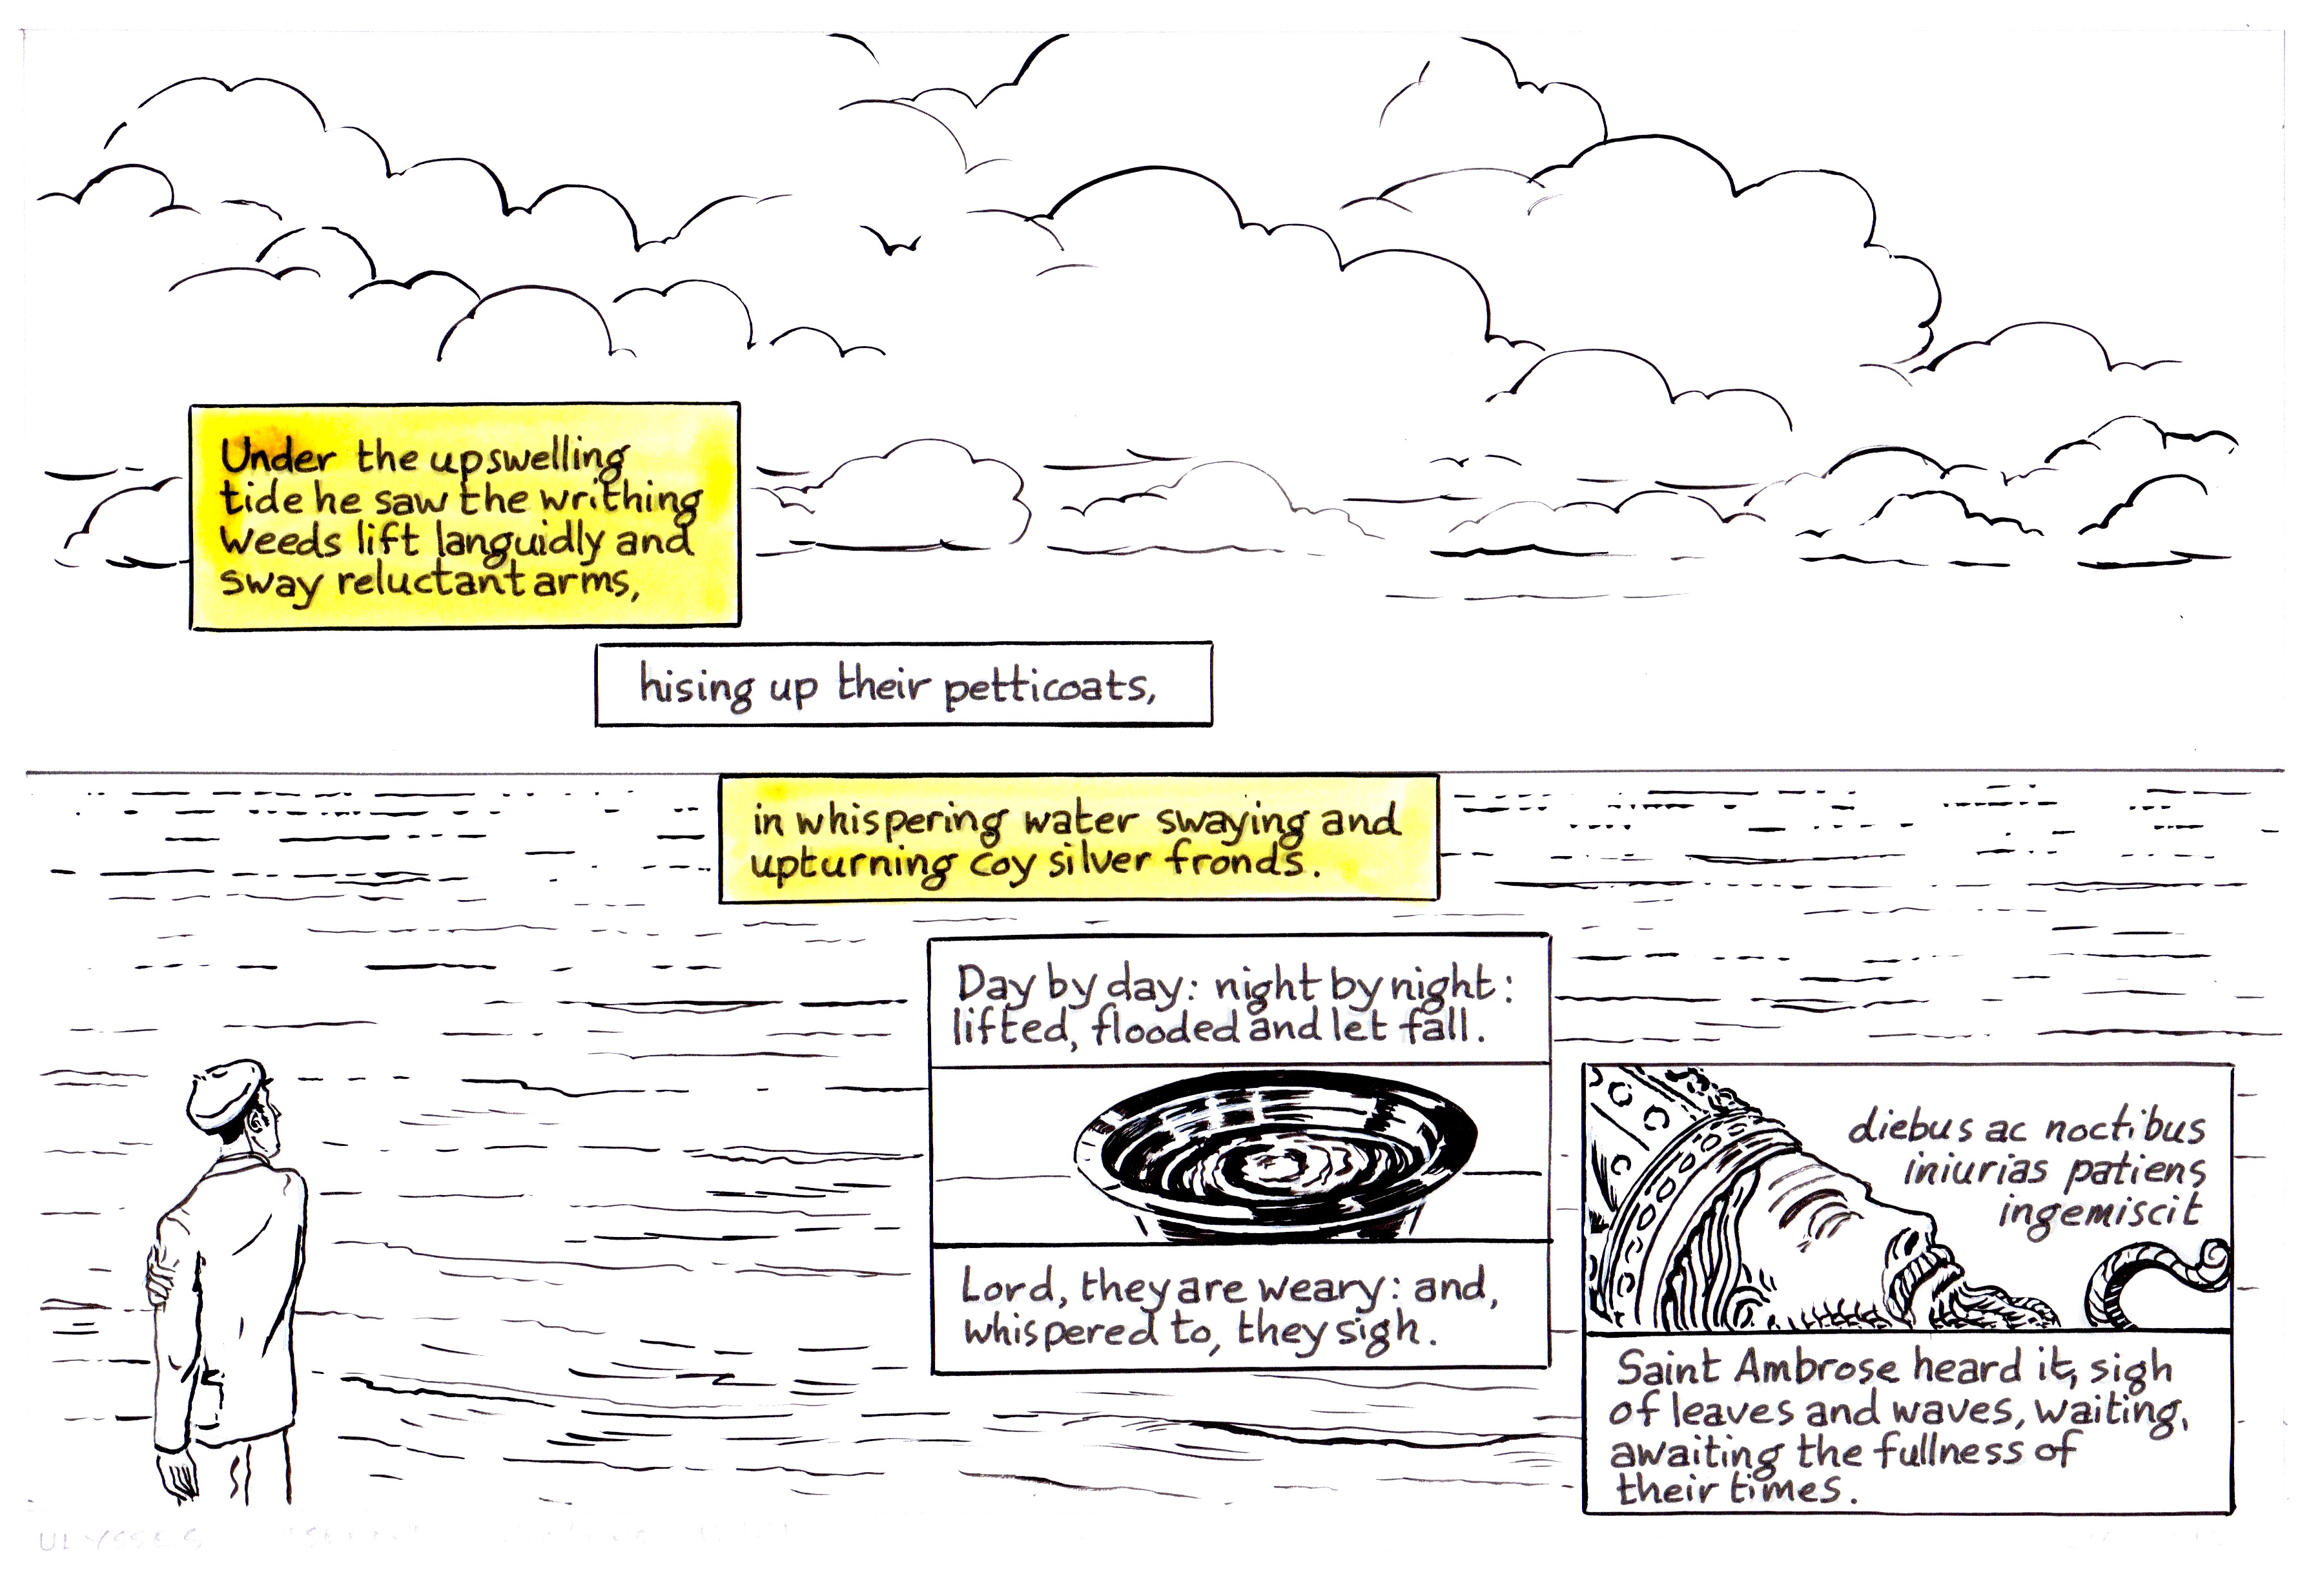 Under the upswelling
tide he saw the writhing
weeds lift languidly and
sway reluctant arms,
hising up their petticoats,
in whispering water swaying and
upturning coy silver fronds.
Day by day: night by night:
lifted, flooded and let fall.
Lord, they are weary: and,
whispered to, they sigh.
diebus ac noctibus
iniurias patiens
ingemiscit
Saint Ambrose heard it, sigh
of leaves and waves, waiting,
awaiting the fullness of
their times.
ULYSSES